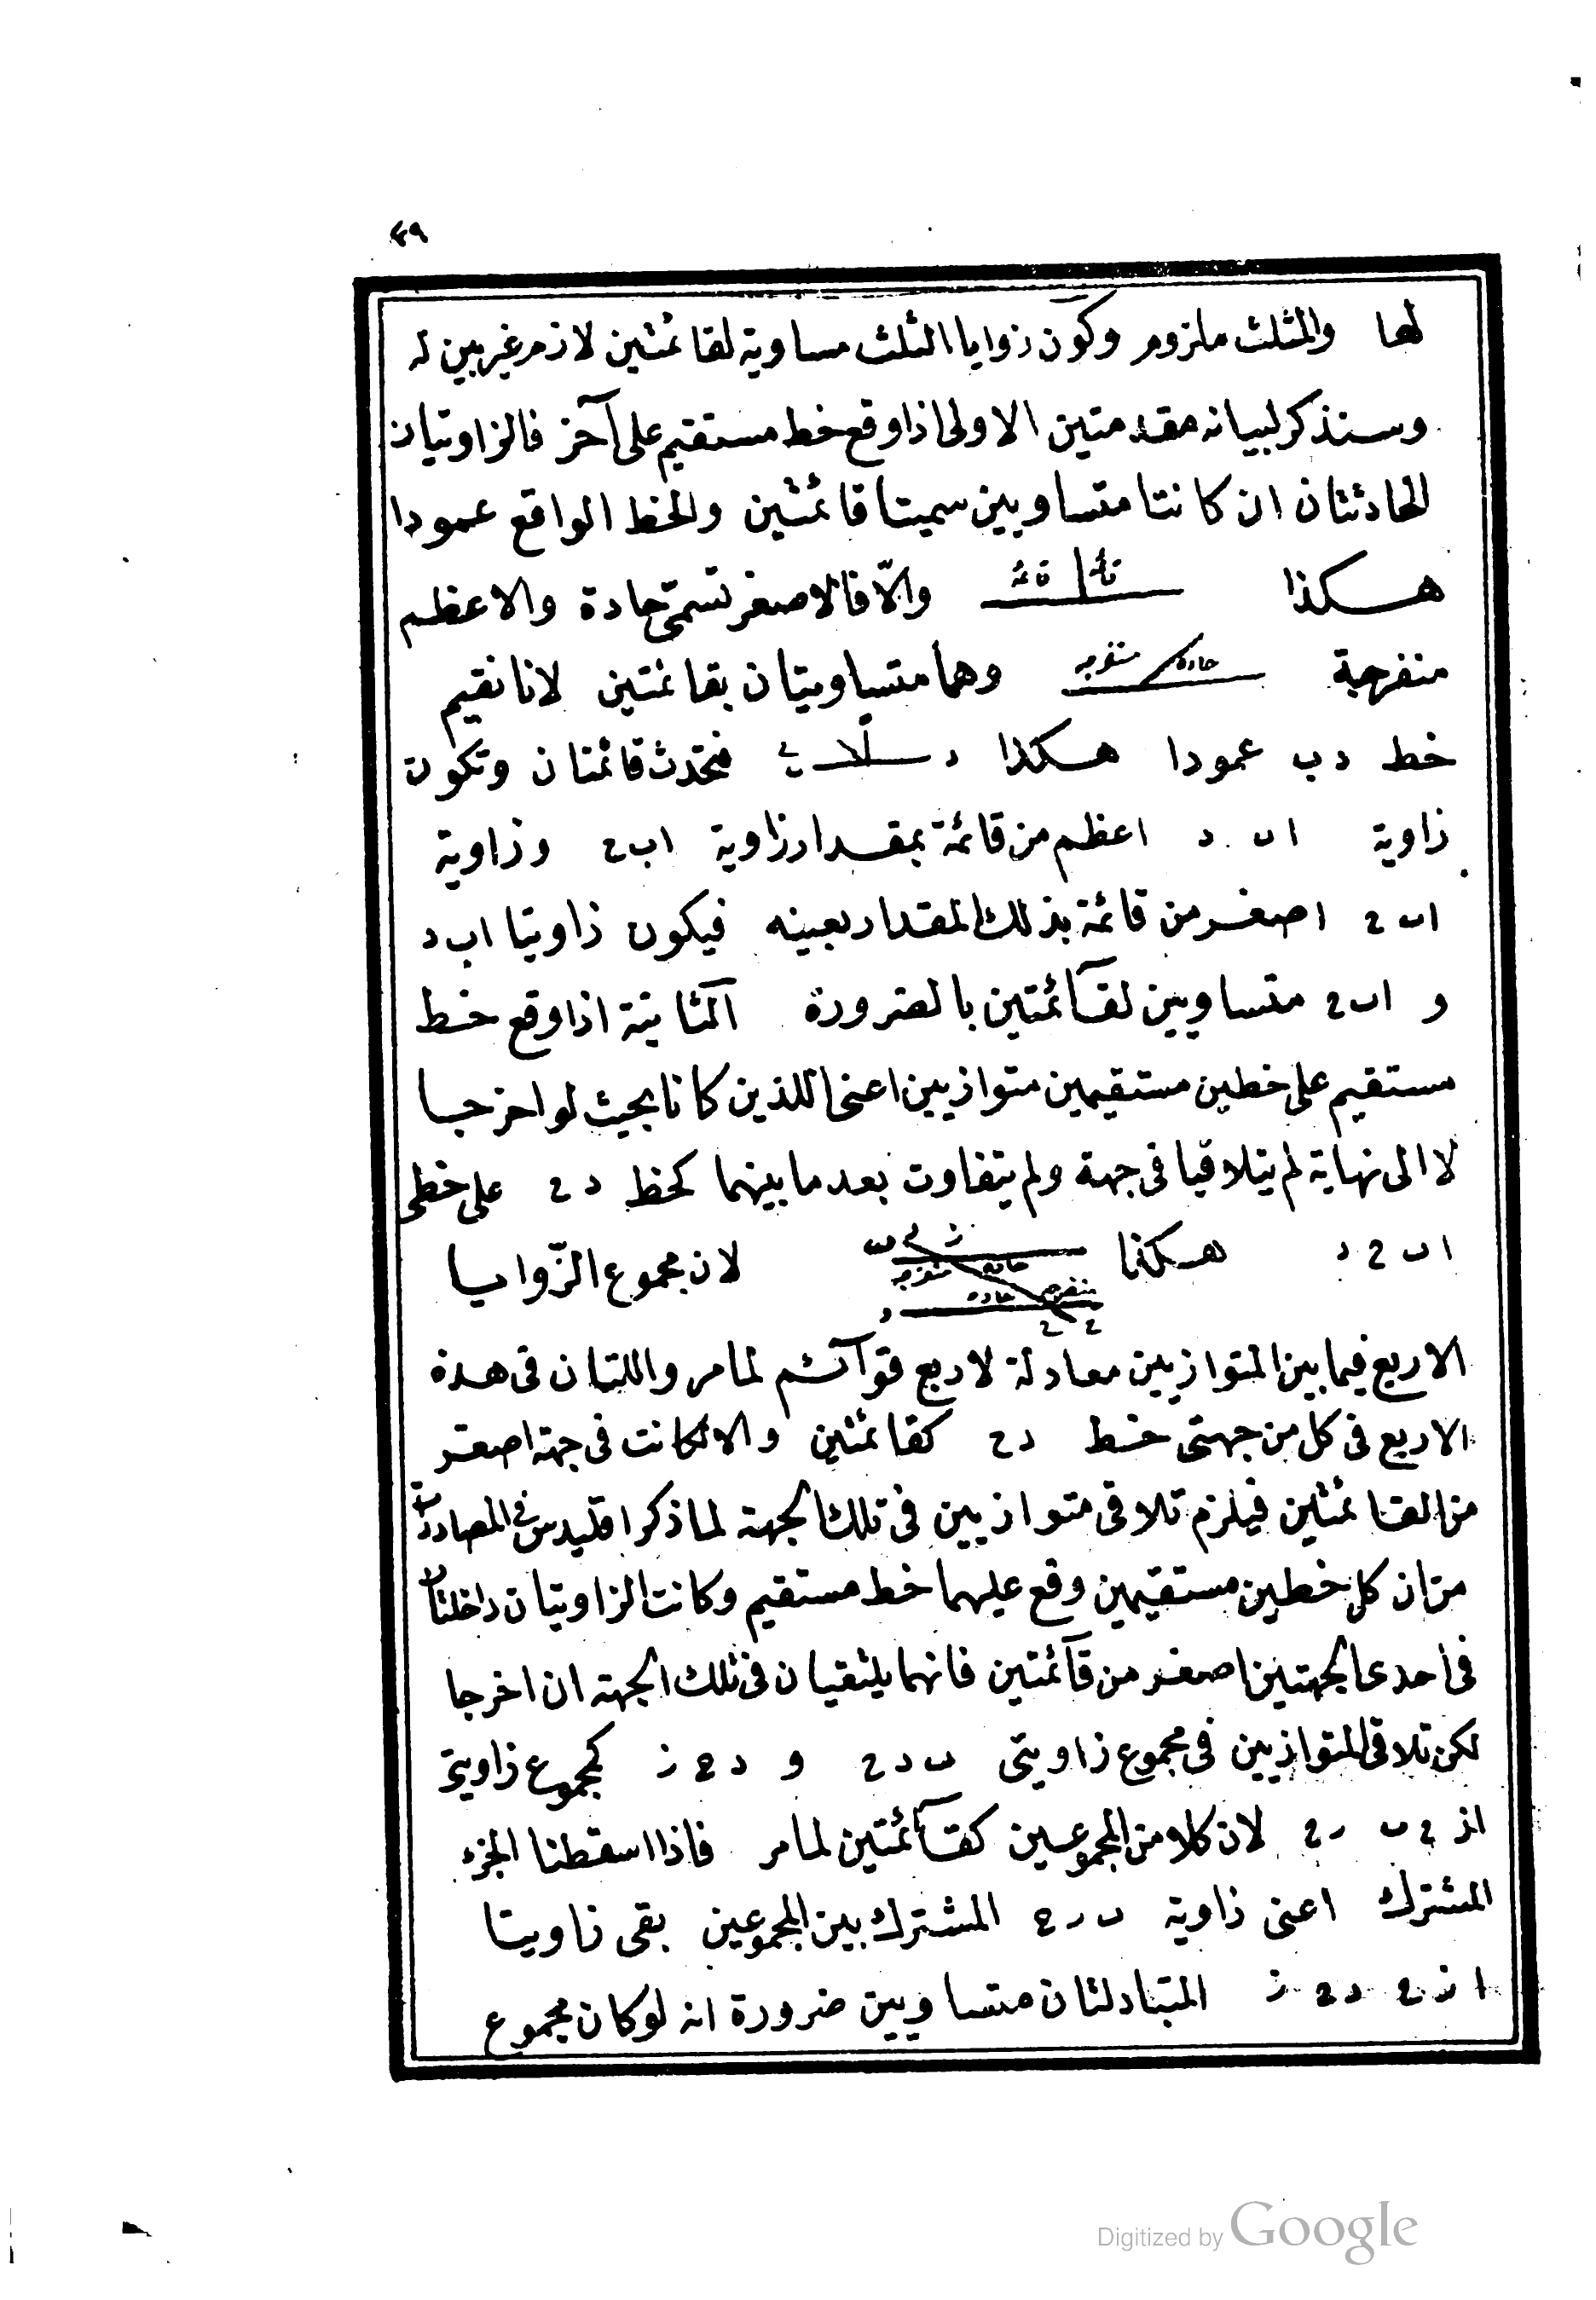 ٤٩
لها والمثلث ملزوم وكون زوايا الثلث مساوية لقائمتين لازم غير بين له
وسنذكر لبيانه مقدمتين الاولى اذا وقع خط مستقيم على آخر فالزاويتان
الحادثتان ان كانتا متساويين سميتا قائمتين والخط الواقع عمودا
هكذا قائمه قائمه والّا فالاصغر تسمّى حادة والاعظم
منفرجة حاده منفرجه وهما متساويتان بقائمتين لانا نقيم
خط د ب عمودا هكذا د فتحدث قائمتان وتكون
زاوية ا ب د اعظم من قائمة بمقدار زاوية ا ب ح وزاوية
ا ب ح اصغر من قائمة بذلك المقدار بعينه فيكون زاويتا ا ب د
و ا ب ح متساويين لقآئمتين بالضرورة الثانية اذا وقع خط
مستقيم على خطين مستقيمين متوازيين اعنى اللذين كانا بحيث لو اخرجا
لا الى نهاية لم يتلاقيا فى جهة ولم يتفاوت بعد ما بينهما كخط د ح على خطى
ا ب ح د هكذا ز ب حاده منفرجه منفرجه حاده د ح لان مجموع الزّوايا
الاربع فيما بين المتوازيين معادلة لاربع قوآئم لما مر واللتان فى هذه
الاربع فى كل من جهتى خط د ح كقائمتين والا لكانت فى جهة اصغر
من القائمتين فيلزم تلاقى متوازيين فى تلك الجهة لما ذكر اقليدس فى المصادرت
من ان كل خطين مستقيمين وقع عليهما خط مستقيم وكانت الزاويتان داخلتان
فى احدى الجهتين اصغر من قآئمتين فانهما يلتقيان فى تلك الجهة ان اخرجا
لكن تلاقى المتوازيين فى مجموع زاويتى ب د ح و د ح ز كمجموع زاويتى
ا ز ح ب ر ح لان كلا من المجموعين كقآئمتين لما مر فاذا اسقطنا الجزء
المشترك اعنى زاوية ب ر ح المشترك بين المجموعين بقى زاويتا
ا ز ح د ح ز المتبادلتان متساويين ضرورة انه لو كان مجموع
Digitized by Google